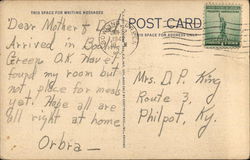 THIS SPACE FOR WRITING MESSAGES
POST CARD
THIS SPACE FOR ADDRESS ONLY
Dear Mother &
Arrived in Bowling
Green O.K. Have
found my room but
not place for meals
yet. Hope all are
all right at home
Orbra
Mrs. D. P. King
Route 3,
Philpot, Ky.